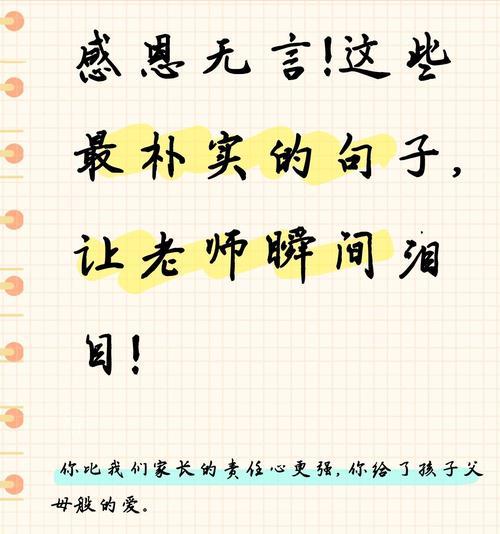 感恩无言!这些
最朴实的句子,
让老师瞬间泪
目!
你比我们家长的责任心更强,你给了孩子父
母般的爱。